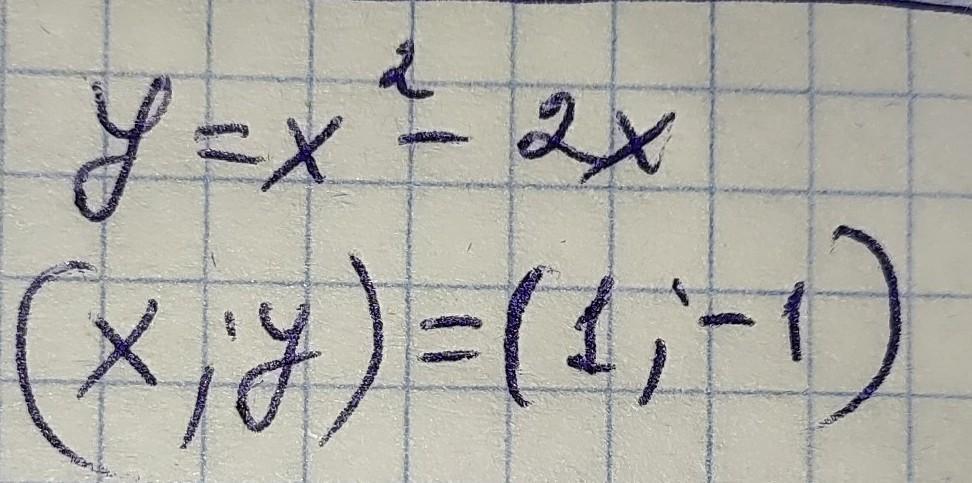 y = x² - 2x
(x; y) = (1; -1)